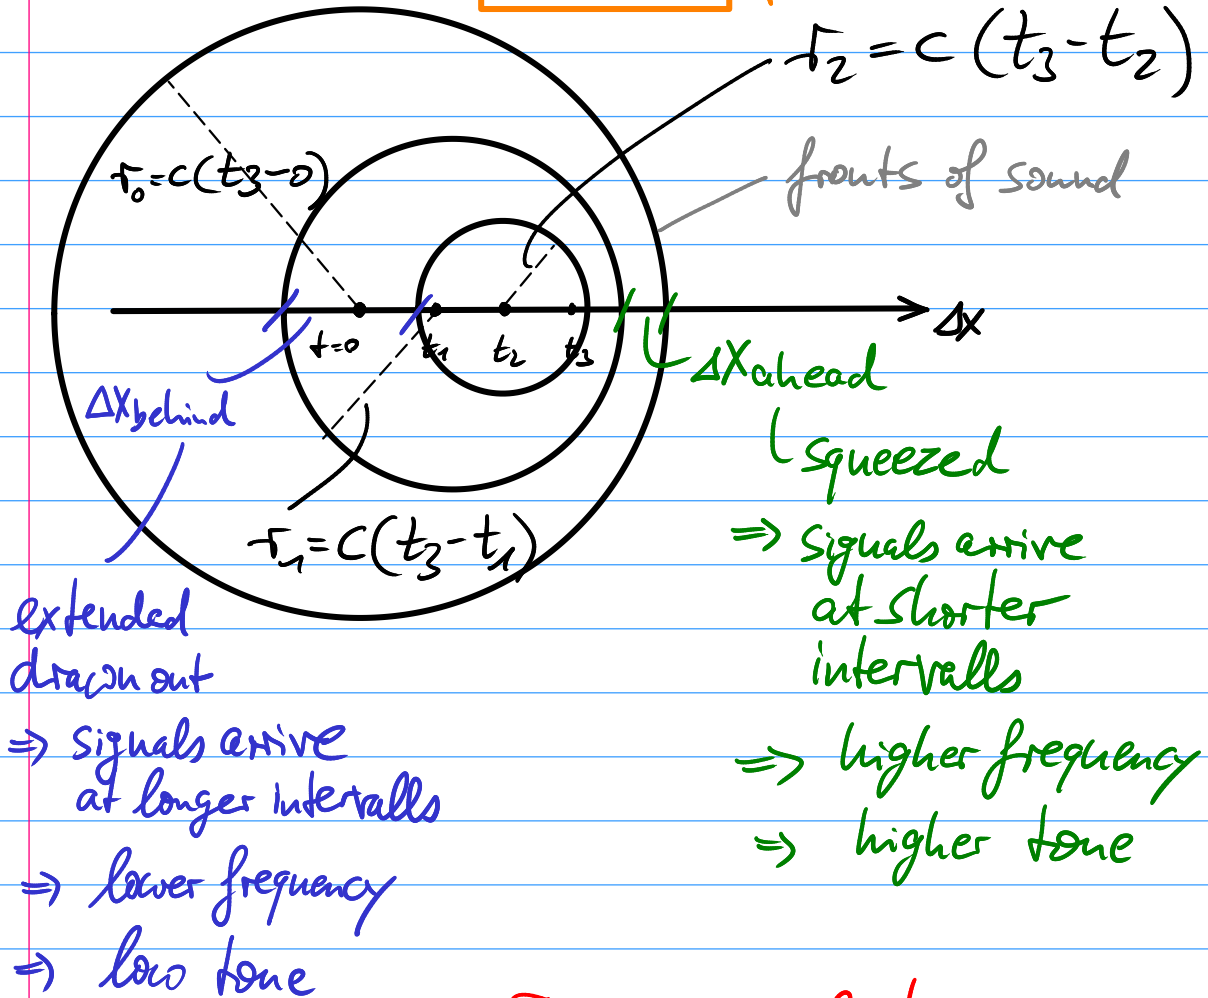 r₂ = c (t₃ - t₂)
fronts of sound
r₀ = c(t₃-0)
Δx
t=0
t₁
t₂
t₃
Δx ahead
Δx behind
squeezed
r₁ = c(t₃ - t₁)
⇒ signals arrive
at shorter
intervalls
⇒ higher frequency
⇒ higher tone
extended
drawn out
⇒ signals arrive
at longer intervalls
⇒ lower frequency
⇒ low tone